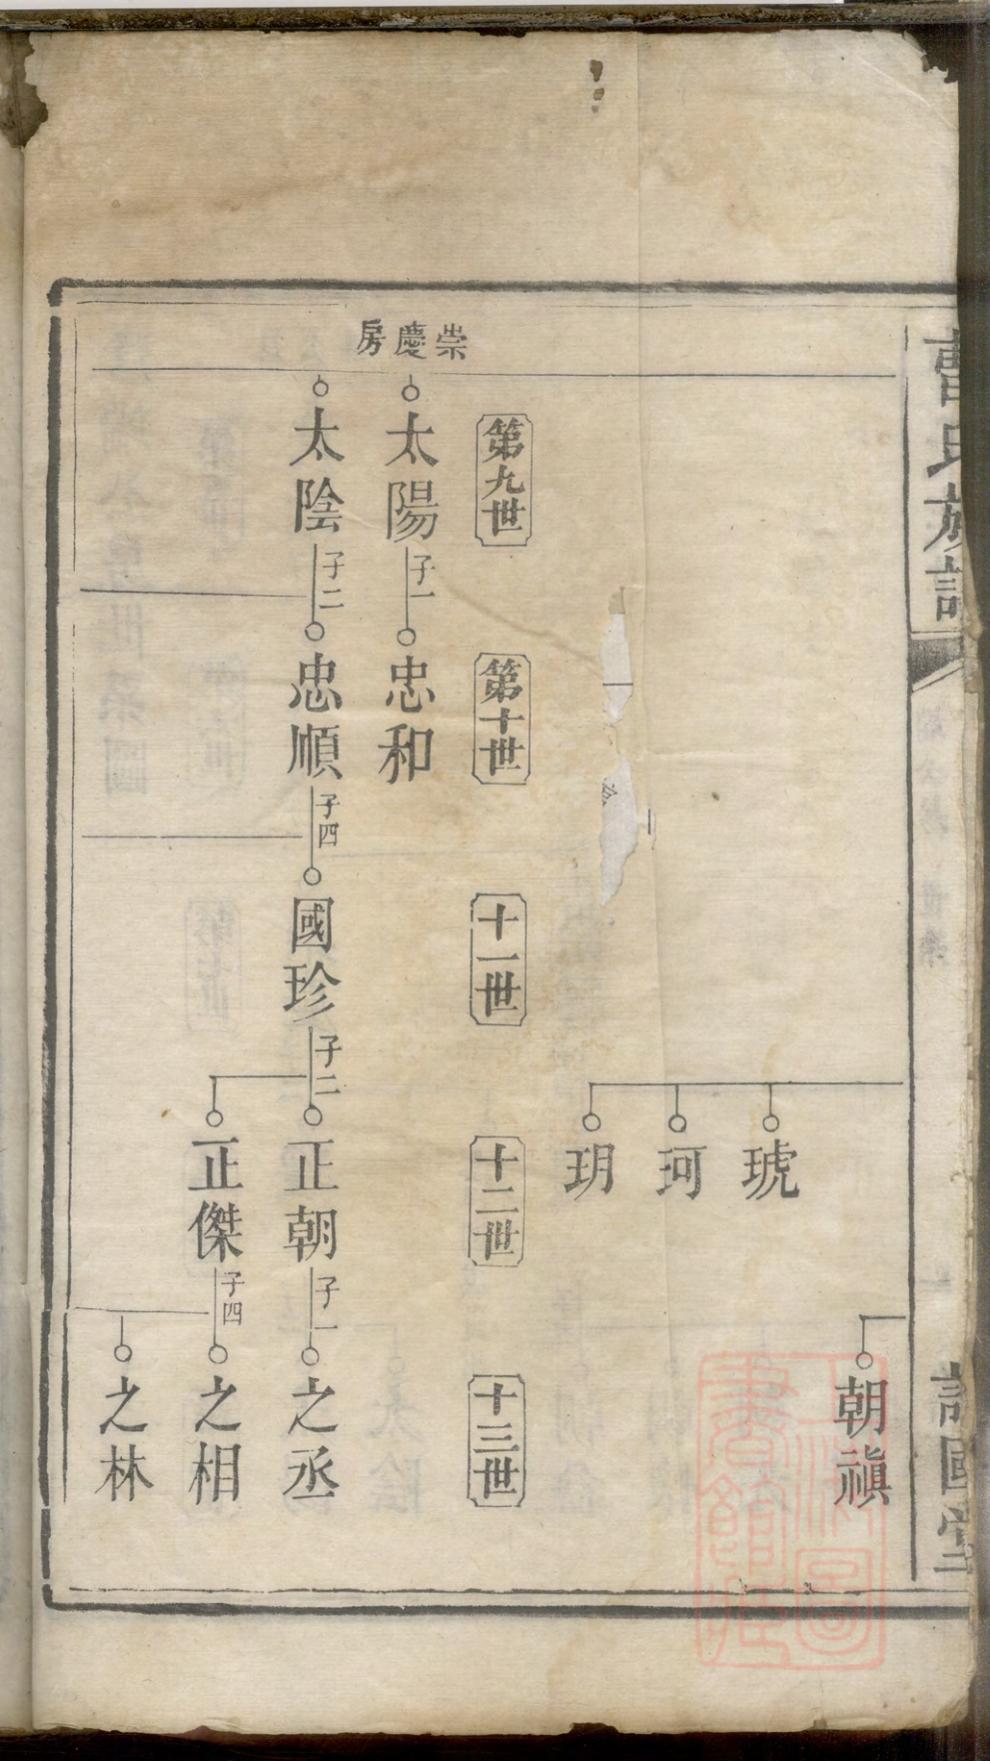 曹氏族譜
朝禛
琥
珂
玥
第九世
第十世
十一世
十二世
十三世
崇慶房
太陽
子一
忠和
太陰
子二
忠順
子四
國珍
子二
正朝
子一
之丞
正傑
子四
之相
之林